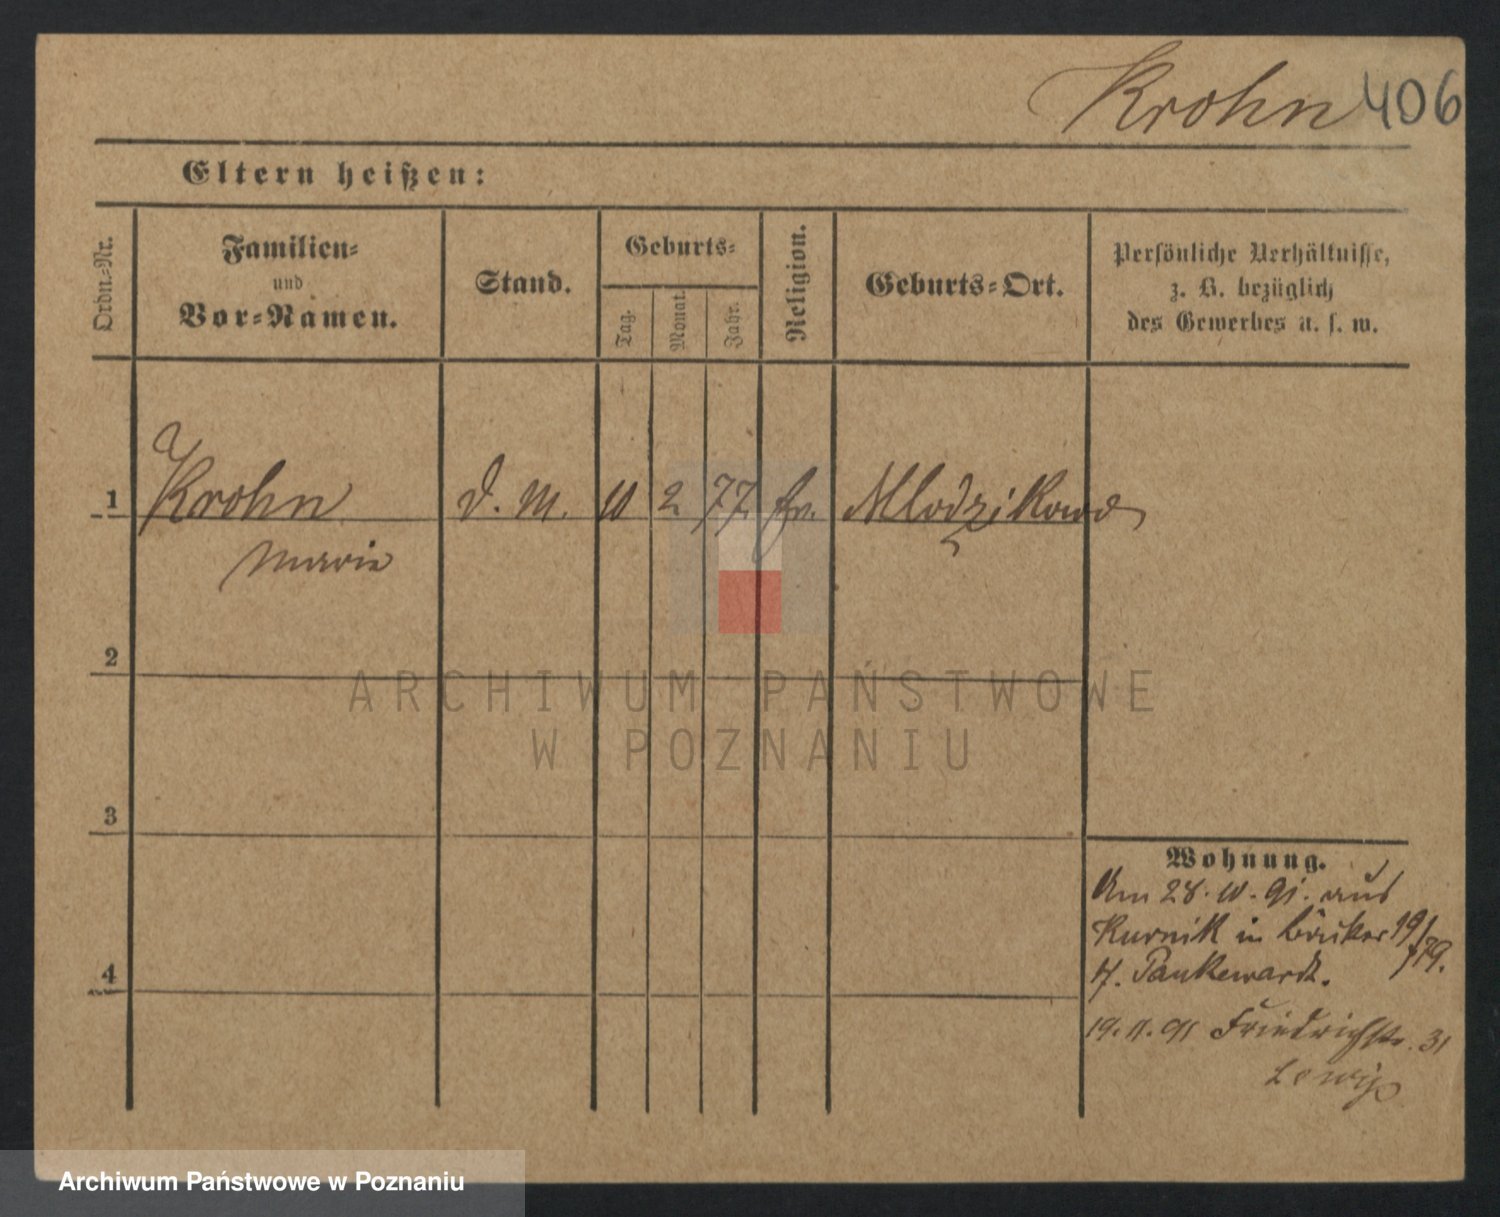 Krohn 406
Eltern heißen:
Ordn.-Nr.
Familien-
und
Vor-Namen.
Stand.
Geburts-
Tag.
Monat.
Jahr.
Religion.
Geburts-Ort.
Persönliche Verhältnisse,
z. B. bezüglich
des Gewerbes u. s. w.
1 Krohn d. M. 10 2 77 Mlodzikowo
Marie
2
3
4
Wohnung.
Am 28. 10. 91. aus
Kurnik in 19/
H. 79.
19. 11. 91 Friedrichstr. 31
ARCHIWUM PAŃSTWOWE
W POZNANIU
Archiwum Państwowe w Poznaniu